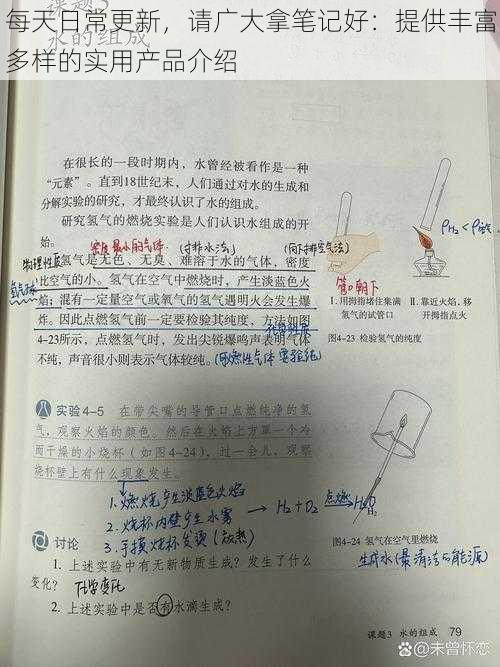 每天日常更新，请广大拿笔记好：提供丰富
多样的实用产品介绍
课题3
水的组成
在很长的一段时期内，水曾经被看作是一种
“元素”。直到18世纪末，人们通过对水的生成和
分解实验的研究，才最终认识了水的组成。
研究氢气的燃烧实验是人们认识水组成的开
始。
密度最小的气体
(排水法)
(向下排空气法)
物理性质
氢气是无色、无臭、难溶于水的气体，密度
比空气的小。氢气在空气中燃烧时，产生淡蓝色火
焰；混有一定量空气或氧气的氢气遇明火会发生爆
炸。因此点燃氢气前一定要检验其纯度，方法如图
化学性质
4-23所示，点燃氢气时，发出尖锐爆鸣声表明气体
不纯，声音很小则表示气体较纯。
(可燃性气体要验纯)
管口朝下
I. 用拇指堵住集满
氢气的试管口
II. 靠近火焰，移
开拇指点火
图4-23 检验氢气的纯度
实验4-5 在带尖嘴的导管口点燃纯净的氢
气，观察火焰的颜色。然后在火焰上方罩一个冷
而干燥的小烧杯（如图4-24），过一会儿，观察
烧杯壁上有什么现象发生。
1.燃烧产生淡蓝色火焰
2.烧杯内壁产生水雾
3.手摸烧杯发烫(放热)
→ H₂+O₂ 点燃 H₂O
H₂
图4-24 氢气在空气里燃烧
生成水(最清洁的能源)
讨论
1. 上述实验中有无新物质生成？发生了什么
变化？
化学变化
2. 上述实验中是否有水滴生成？
课题3 水的组成 79
百家号@未曾怀恋